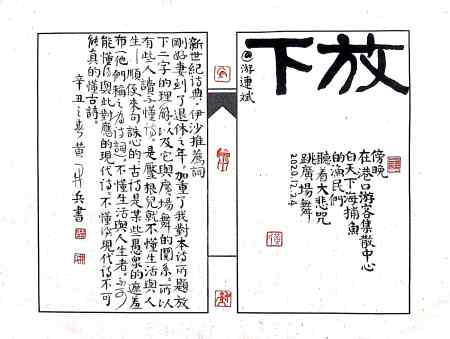 放下
@游連斌
傍晚
在港口游客集散中心
白天下海捕魚
的漁民們
聽着大悲咒
跳廣場舞
2020.12.24
新世紀詩典·伊沙推薦詞
剛好妻到了退休之年，加重了我對本詩所題放
下二字的理解，以及它與廣場舞的關系，所以
有些人讀不懂詩，是壓根兒就不懂生活與人
生！順便來句誅心的：古詩是某些愚衆的遮羞
布（他們稱之爲詩詞），不懂生活與人生者，不可
能懂得與此對應的現代詩，不懂得現代詩不可
能真的懂古詩。
辛丑之春黄開兵書